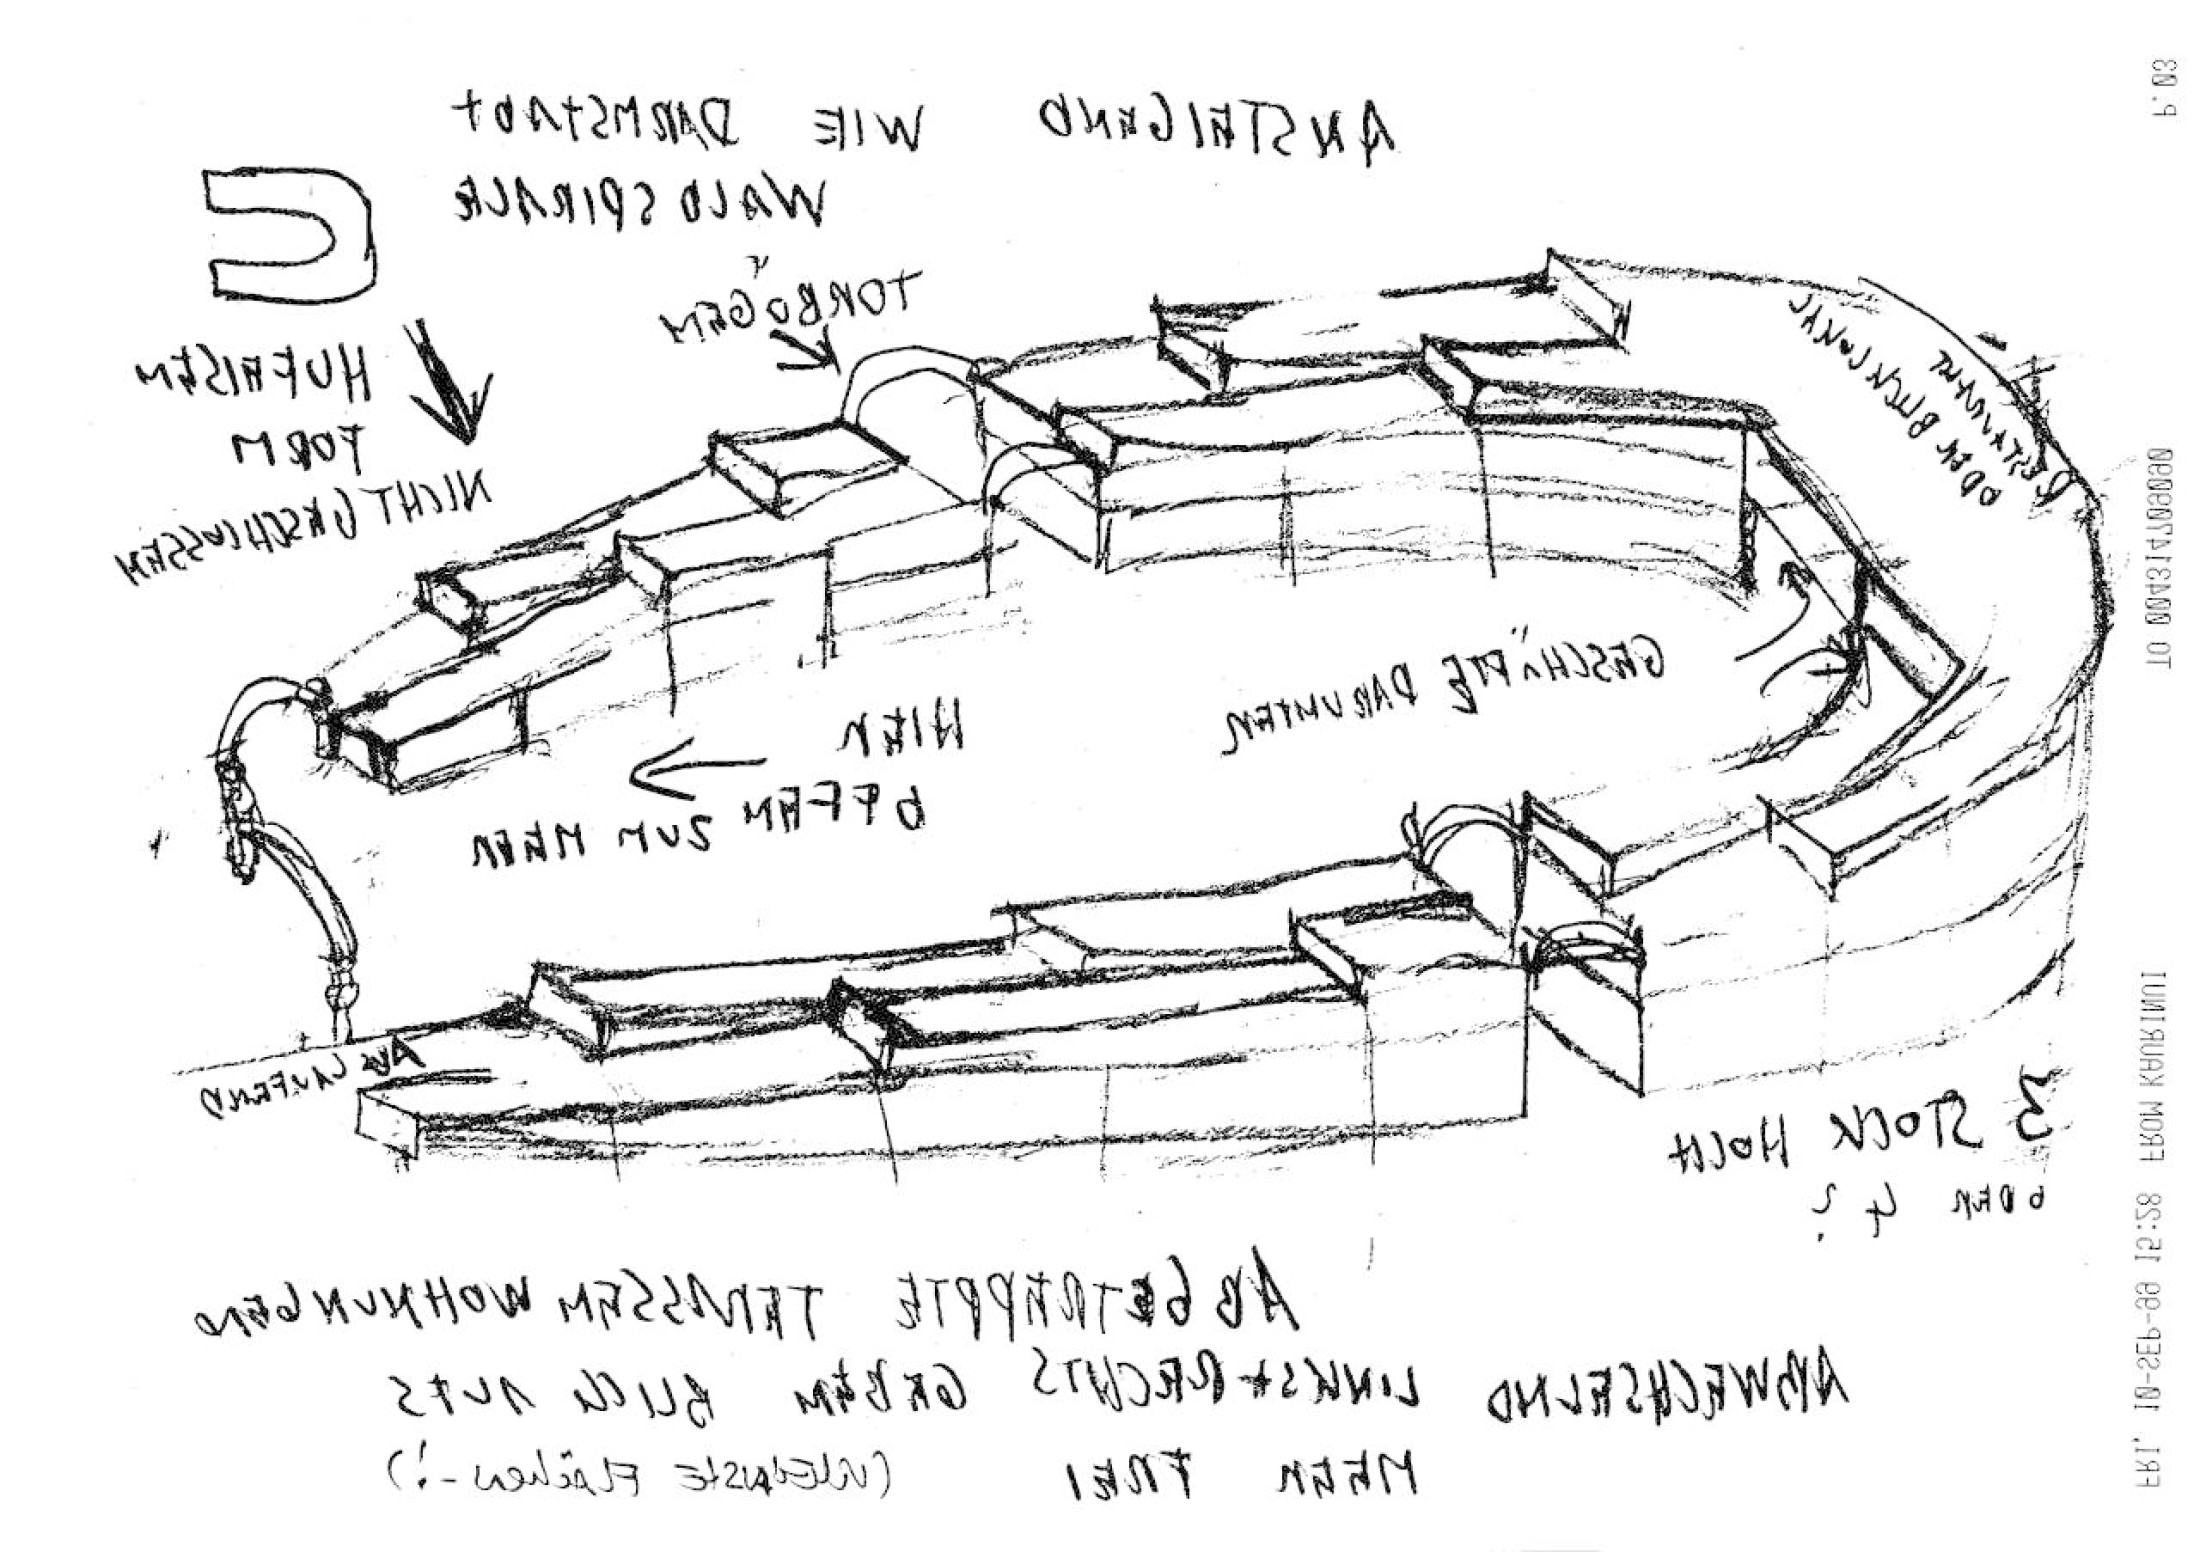 ANSTEIGEND WIE DARMSTADT
WALDSPIRALE
TORBÖGEN
HUFEISEN
FORM
NICHT GESCHLOSSEN
RESTAURANT
ODER BLICKLOKAL
GESCHÄFTE DARUNTER
HIER
OFFEN ZUM MEER
AUSLAUFEND
3 STOCK HOCH
ODER 4?
ABGETREPPTE TERASSENWOHNUNGEN
ABWECHSELND LINKS + RECHTS GEBEN BLICK AUFS
MEER FREI FLÄCHEN-!)
FRI, 10-SEP-99 15:28 FROM KAURINUI
TO
P.03